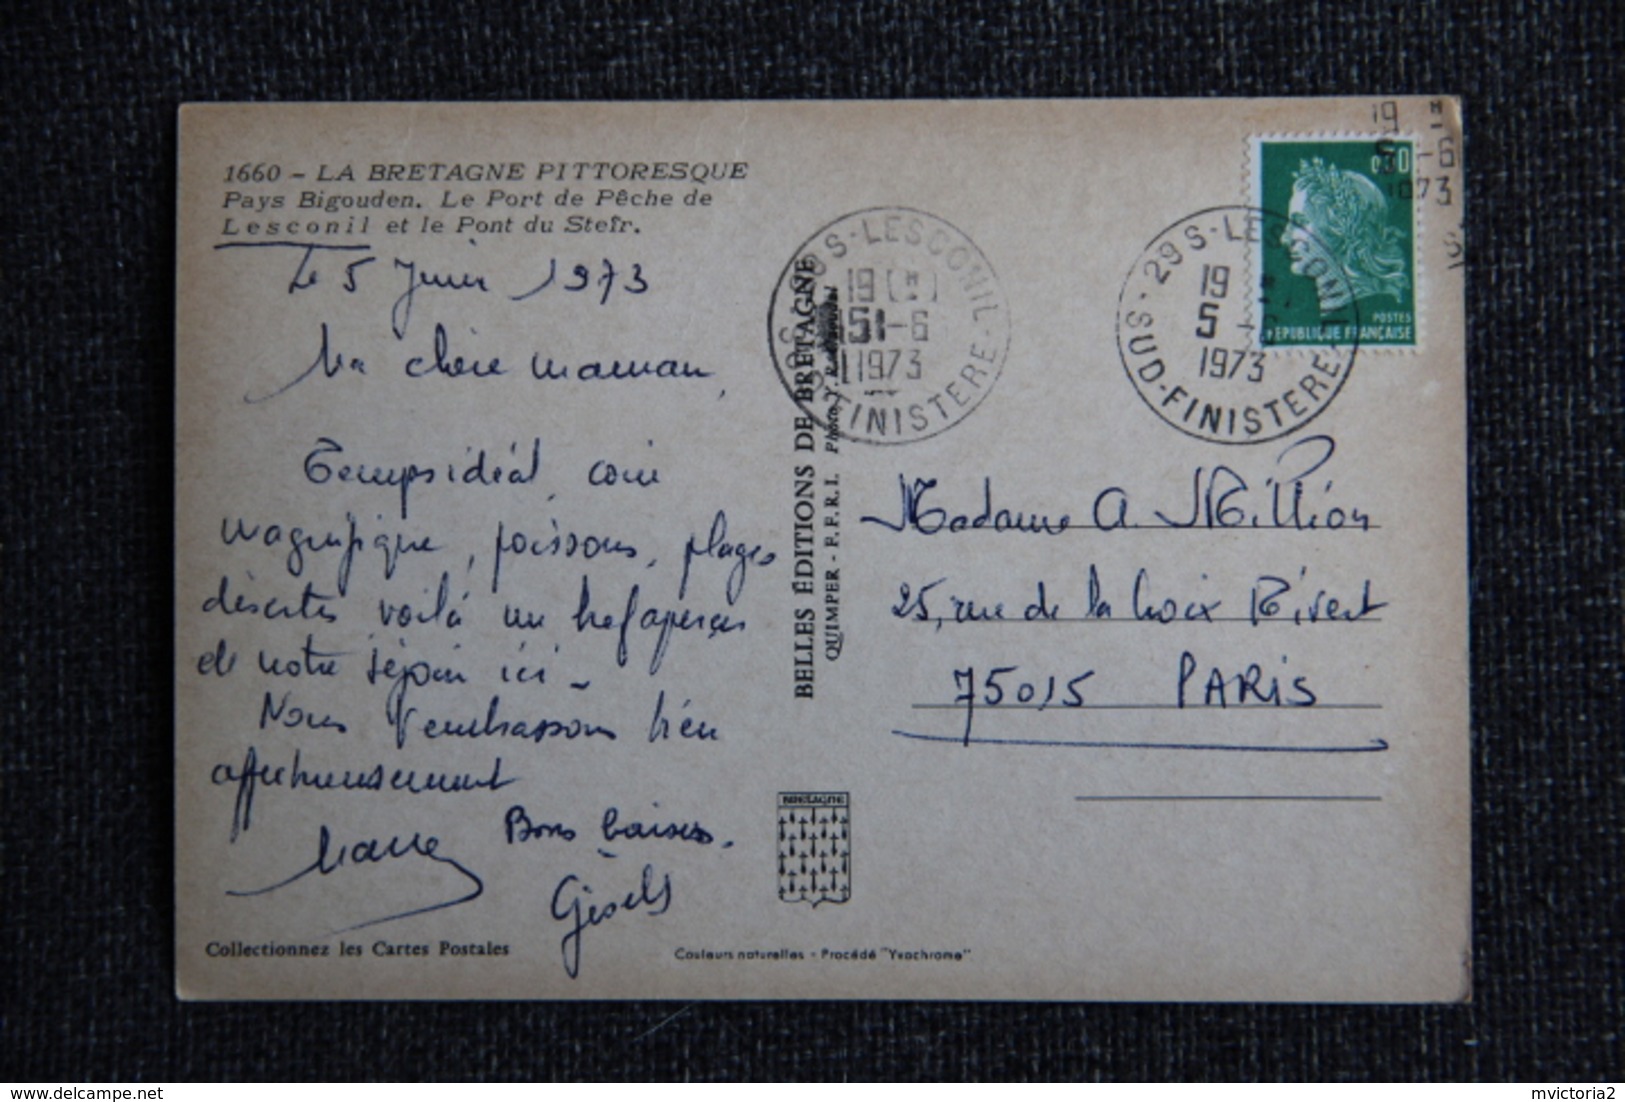 1660 - LA BRETAGNE PITTORESQUE
Pays Bigouden. Le Port de Pêche de
Lesconil et le Pont du Steïr.
Le 5 Juin 1973
Ma chère maman,
Temps idéal, coin
magnifique, poissons, plages
désertes voilà un bref aperçu
de notre séjour ici -
Nous t'embrassons bien
affectueusement
Bons baisers.
Collectionnez les Cartes Postales
BELLES ÉDITIONS DE BRETAGNE
QUIMPER - F.F.R.I.
BRETAGNE
Couleurs naturelles - Procédé "Yvachrome"
29S-LESCONIL
19 H
5 -6
1973
SUD-FINISTERE
29S-LESCONIL
19 H
5 -6
1973
SUD-FINISTERE
19 H
5 -6
1973
0,30
POSTES
REPUBLIQUE FRANÇAISE
Madame A. Million
25, rue de la Croix Nivert
75015 PARIS
delcampe.net
mvictoria2